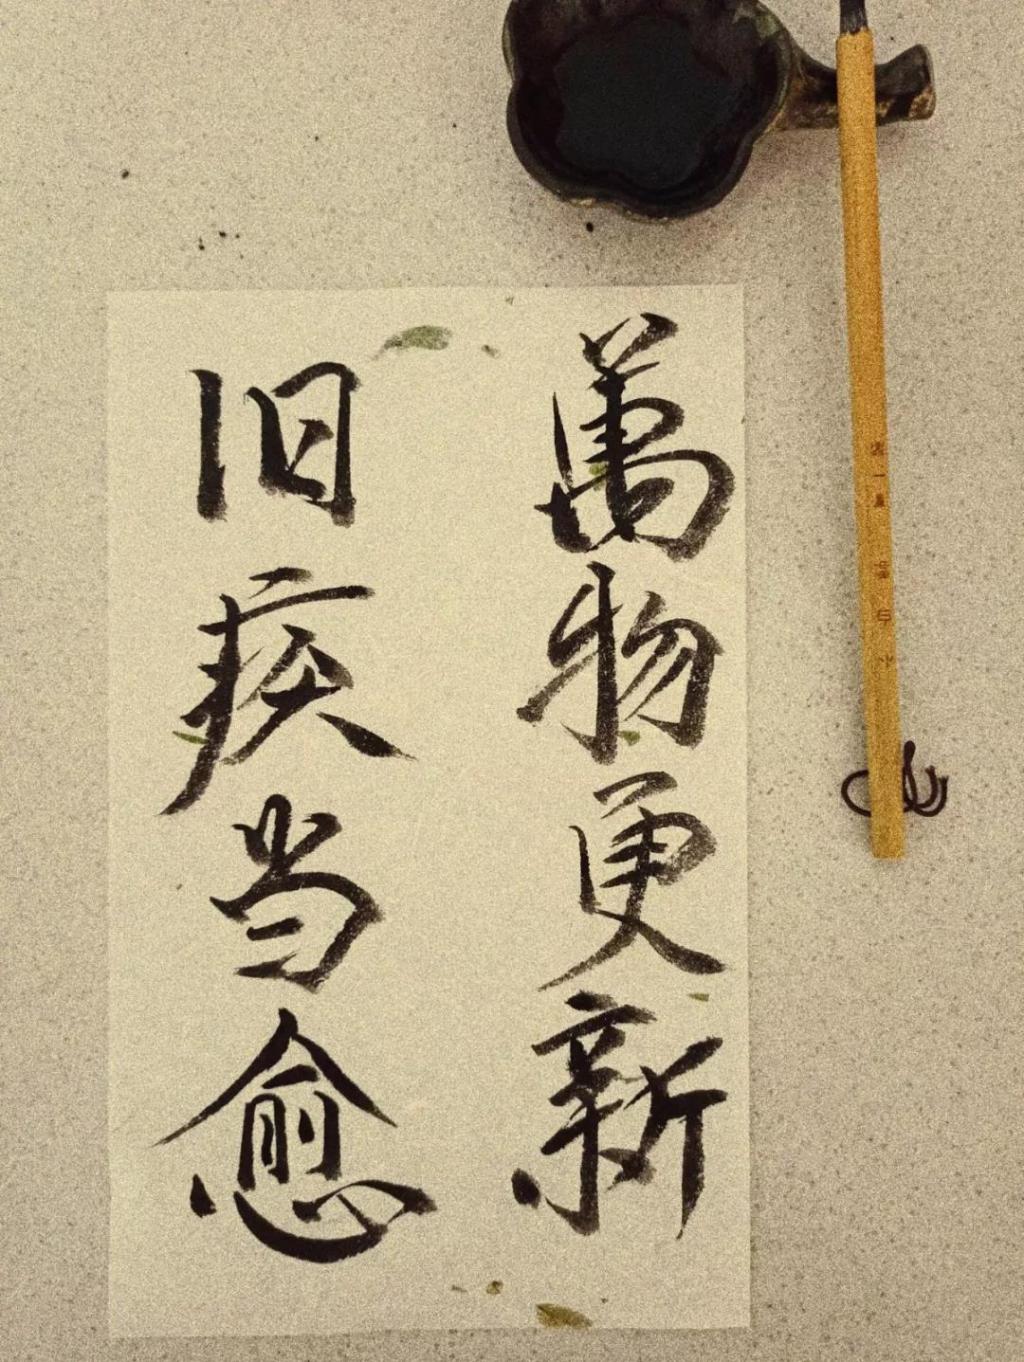 萬物更新
旧疾当愈